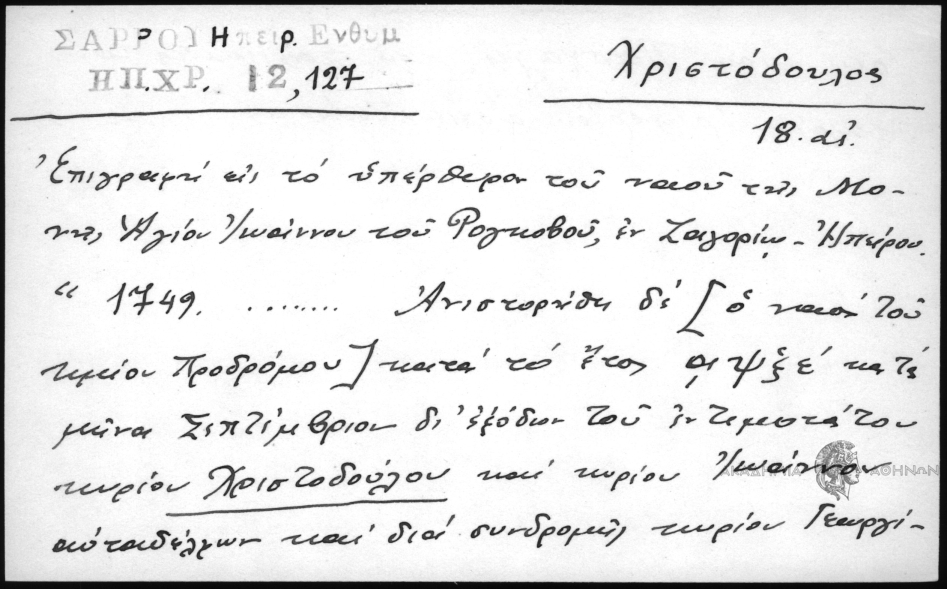 ΣΑΡΡΟΥ Ηπειρ. Ενθυμ
ΗΠ.ΧΡ. 12, 127
Χριστόδουλος
18. αἰ.
Ἐπιγραφή εἰς τό ὑπέρθυρον τοῦ ναοῦ τῆς Μο-
νῆς Ἁγίου Ἰωάννου τοῦ Ρογκοβοῦ, ἐν Ζαγορίῳ - Ἠπείρου.
“ 1749. ........ Ἀνιστορήθη δέ [ὁ ναός τοῦ
τιμίου Προδρόμου] κατά τό ἔτος αψξέ κατά
μῆνα Σεπτέμβριον δι' ἐξόδων τοῦ ἐντιμοτάτου
κυρίου Χριστοδούλου καί κυρίου Ἰωάννου
αὐταδέλφων καί διά συνδρομῆς κυρίου Γεωργί-
ΑΚΑΔΗΜΙΑ ΑΘΗΝΩΝ